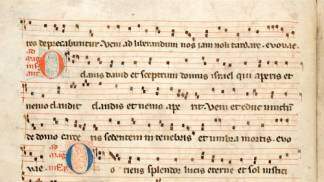 tes deprecabuntur. Veni ad liberandum nos iam noli tardare. evovae
O clavis david et sceptrum domus israel qui aperis et
nemo claudit claudis et nemo ape rit. Veni et educ vinctum
de domo carce ris sedentem in tenebris et umbra mortis. evo
vae O riens splendor lucis eterne et sol iustici